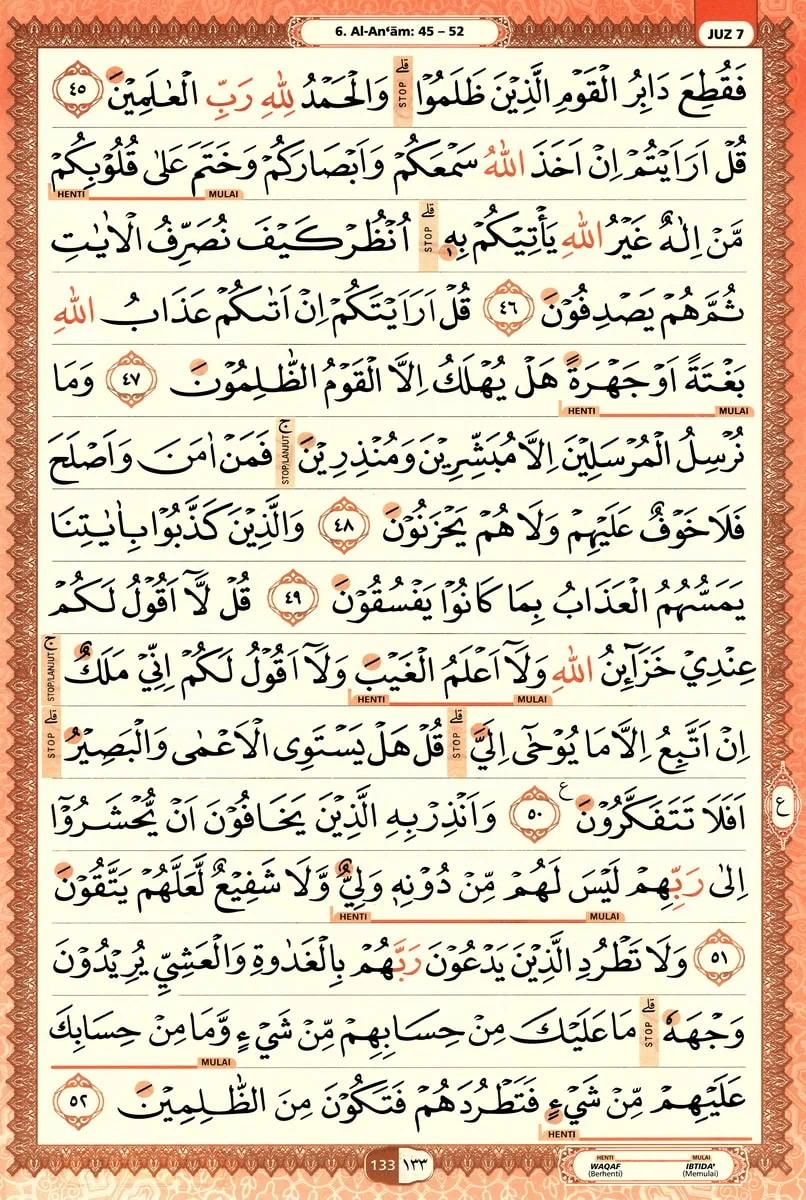 6. Al-An‘ām: 45 – 52
JUZ 7
فَقُطِعَ دَابِرُ الْقَوْمِ الَّذِيْنَ ظَلَمُوْاۗ وَالْحَمْدُ لِلّٰهِ رَبِّ الْعٰلَمِيْنَ ٤٥
STOP
قُلْ اَرَاَيْتُمْ اِنْ اَخَذَ اللّٰهُ سَمْعَكُمْ وَاَبْصَارَكُمْ وَخَتَمَ عَلٰى قُلُوْبِكُمْ
MULAI HENTI
مَّنْ اِلٰهٌ غَيْرُ اللّٰهِ يَأْتِيْكُمْ بِهٖۗ اُنْظُرْ كَيْفَ نُصَرِّفُ الْاٰيٰتِ
STOP
ثُمَّ هُمْ يَصْدِفُوْنَ ٤٦ قُلْ اَرَاَيْتَكُمْ اِنْ اَتٰىكُمْ عَذَابُ اللّٰهِ
بَغْتَةً اَوْ جَهْرَةً هَلْ يُهْلَكُ اِلَّا الْقَوْمُ الظّٰلِمُوْنَ ٤٧ وَمَا
MULAI HENTI
نُرْسِلُ الْمُرْسَلِيْنَ اِلَّا مُبَشِّرِيْنَ وَمُنْذِرِيْنَۚ فَمَنْ اٰمَنَ وَاَصْلَحَ
STOP/LANJUT
فَلَا خَوْفٌ عَلَيْهِمْ وَلَا هُمْ يَحْزَنُوْنَ ٤٨ وَالَّذِيْنَ كَذَّبُوْا بِاٰيٰتِنَا
يَمَسُّهُمُ الْعَذَابُ بِمَا كَانُوْا يَفْسُقُوْنَ ٤٩ قُلْ لَّآ اَقُوْلُ لَكُمْ
عِنْدِيْ خَزَاۤىِٕنُ اللّٰهِ وَلَآ اَعْلَمُ الْغَيْبَ وَلَآ اَقُوْلُ لَكُمْ اِنِّيْ مَلَكٌۚ
STOP/LANJUT
MULAI HENTI
اِنْ اَتَّبِعُ اِلَّا مَا يُوْحٰٓى اِلَيَّۗ قُلْ هَلْ يَسْتَوِى الْاَعْمٰى وَالْبَصِيْرُۗ
STOP STOP
اَفَلَا تَتَفَكَّرُوْنَ ع ٥٠ وَاَنْذِرْ بِهِ الَّذِيْنَ يَخَافُوْنَ اَنْ يُّحْشَرُوْٓا
ع
اِلٰى رَبِّهِمْ لَيْسَ لَهُمْ مِّنْ دُوْنِهٖ وَلِيٌّ وَّلَا شَفِيْعٌ لَّعَلَّهُمْ يَتَّقُوْنَ
MULAI HENTI
٥١ وَلَا تَطْرُدِ الَّذِيْنَ يَدْعُوْنَ رَبَّهُمْ بِالْغَدٰوةِ وَالْعَشِيِّ يُرِيْدُوْنَ
وَجْهَهٗۗ مَا عَلَيْكَ مِنْ حِسَابِهِمْ مِّنْ شَيْءٍ وَّمَا مِنْ حِسَابِكَ
STOP
MULAI
عَلَيْهِمْ مِّنْ شَيْءٍ فَتَطْرُدَهُمْ فَتَكُوْنَ مِنَ الظّٰلِمِيْنَ ٥٢
HENTI
133 ١٣٣
HENTI MULAI
WAQAF IBTIDA’
(Berhenti) (Memulai)